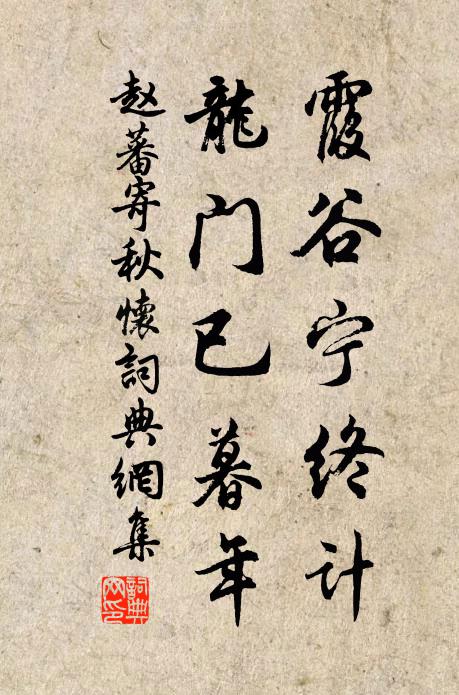 霞谷宁终计
龍门已暮年
赵蕃寄秋懷詞典網集
詞典
文印